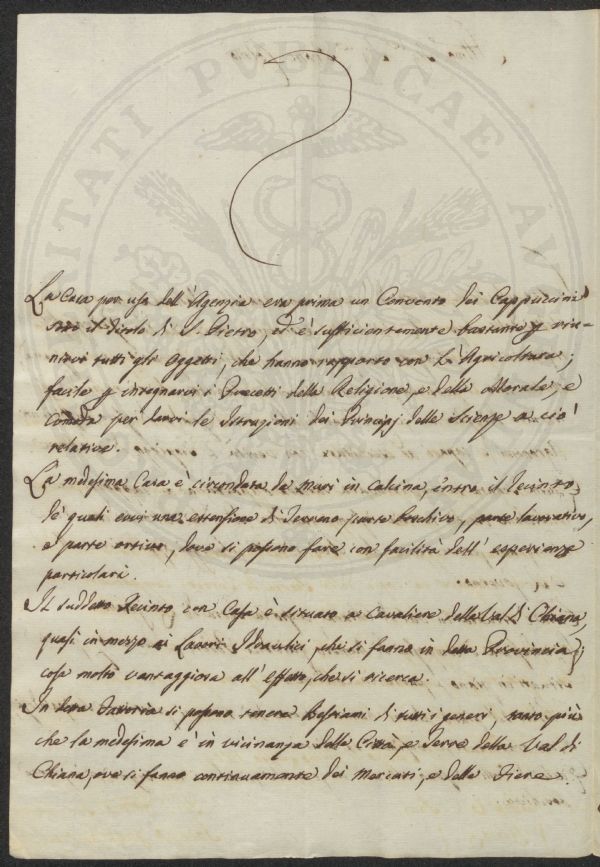 La Casa per uso dell'Agenzia era prima un Convento dei Cappuccini
sotto il titolo di S. Pietro, ed è sufficientemente bastante p riu-
nirvi tutti gli Oggetti, che hanno rapporto con l'Agricoltura;
facile p insegnarvi i Precetti della Religione, e della Morale, e
Comoda per darvi le Istruzioni dei Principj delle Scienze a ciò
relative.
La medesima Casa è circondata da Muri in Calcina, entro il Recinto
de quali evvi una estensione di Terreno parte boschivo, parte lavorativo,
e parte ortivo, dove si possono fare con facilità dell'esperienze
particolari.
Il suddetto Recinto con Casa è situato a Cavaliere della Val di Chiana,
quasi in mezzo ai Lavori Idraulici, che si fanno in detta Provincia;
cosa molto vantaggiosa all'effetto, che si ricerca.
In detta Fattoria si possono tenere Bestiami di tutti i generi, tanto più
che la medesima è in vicinanza delle Città, e Terre della Val di
Chiana, ove si fanno continuamente dei Mercati, e delle Fiere.
ITATI PUBLICAE AU